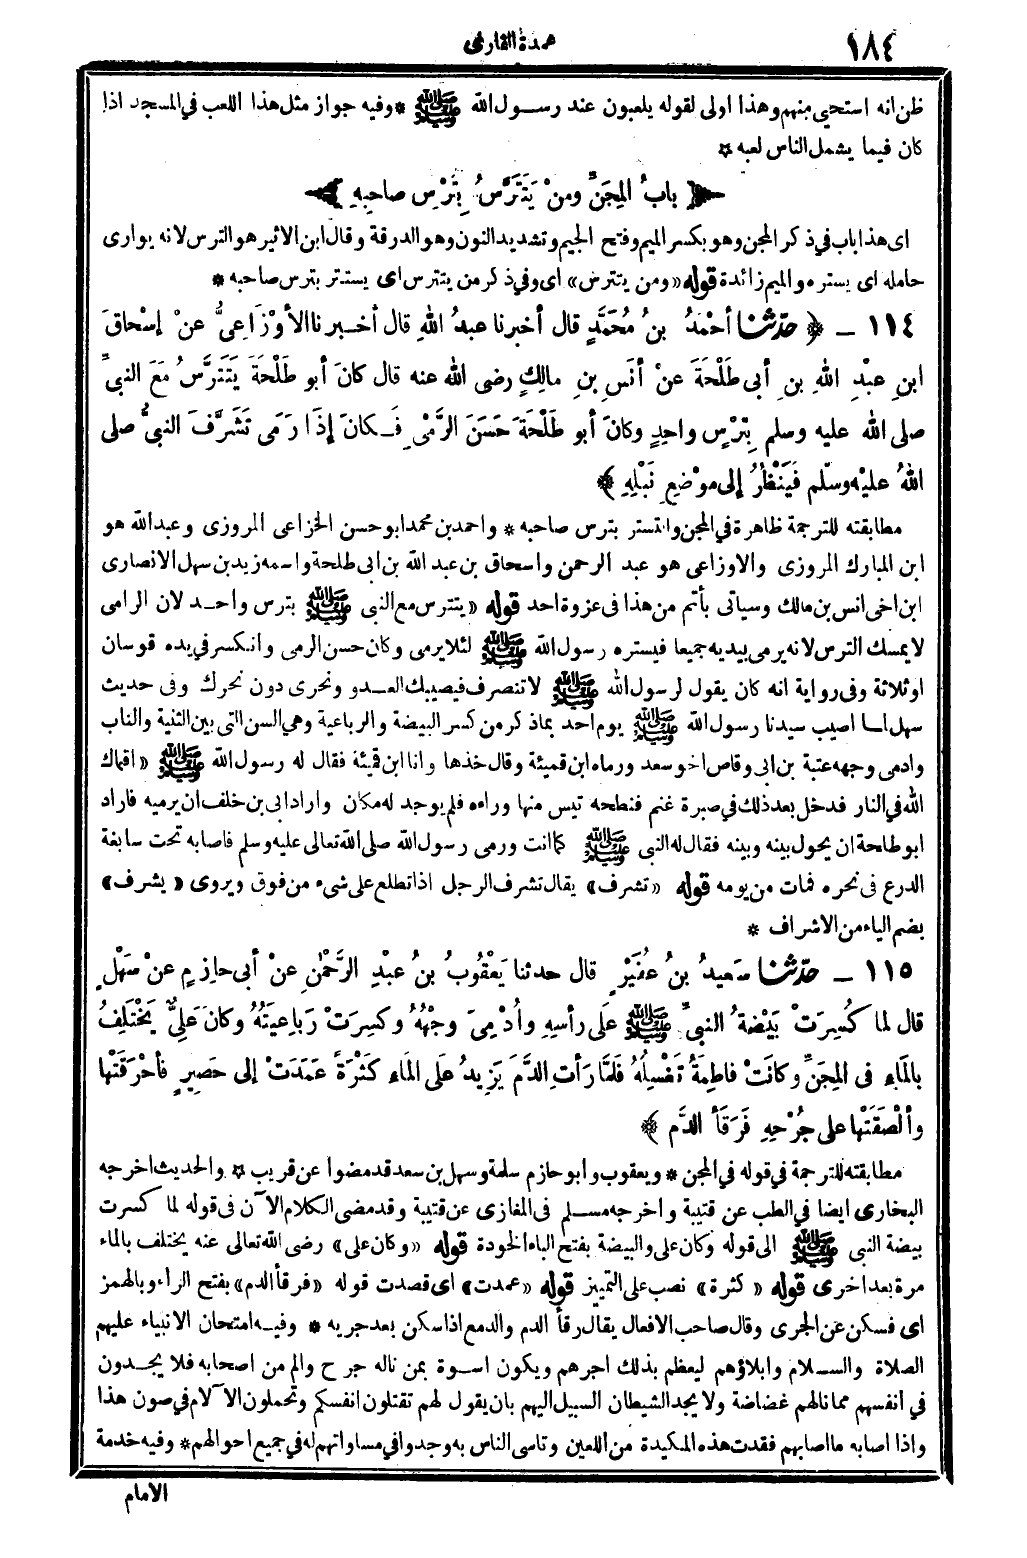 ١٨٤
عمدة القارئ
ظن انه استحيى منهم وهذا اولى لقوله يلعبون عند رسول الله ﷺ * وفيه جواز مثل هذا اللعب في المسجد اذا
كان فيما يشمل الناس لعبه *
﴿ بابُ المِجَنِّ ومنْ يَتَتَرَّسُ بِتُرْسِ صاحِبِهِ ﴾
اى هذا باب في ذكر المجن وهو بكسر الميم وفتح الجيم وتشديد النون وهو الدرقة وقال ابن الاثير هو الترس لانه يوارى
حامله اى يستره والميم زائدة قوله «ومن يتترس» اى وفي ذكر من يتترس اى يستتر بترس صاحبه *
١١٤ ـ ﴿ حدّثنا أحْمَدُ بنُ مُحَمَّدٍ قال أخبرنا عبدُ اللهِ قال أخبرنا الأوْزَاعِيُّ عنْ إسْحاقَ
ابنِ عبْدِ اللهِ بنِ أبى طَلْحَةَ عنْ أنَسِ بنِ مالِكٍ رضى الله عنه قال كانَ أبو طَلْحَةَ يَتَتَرَّسُ مَعَ النبيِّ
صلى الله عليه وسلم بِتُرْسٍ واحِدٍ وكانَ أبو طَلْحَةَ حَسَنَ الرَّمْىِ فَكانَ إذَا رَمَى تَشَرَّفَ النبيُّ صلى
اللهُ عليْه وسلّم فَيَنْظُرُ إلى موْضِعِ نَبْلِهِ ﴾
مطابقته للترجمة ظاهرة في المجن والتستر بترس صاحبه * واحمد بن محمد ابو حسن الخزاعى المروزى وعبد الله هو
ابن المبارك المروزى والاوزاعى هو عبد الرحمن واسحاق بن عبد الله بن ابى طلحة واسمه زيد بن سهل الانصارى
ابن اخى انس بن مالك وسياتى بأتم من هذا فى غزوة احد قوله «يتترس مع النبى ﷺ بترس واحد لان الرامى
لا يمسك الترس لانه يرمى بيديه جميعا فيستره رسول الله ﷺ لئلا يرمى وكان حسن الرمى وانكسر في يده قوسان
او ثلاثة وفى رواية انه كان يقول لرسول الله ﷺ لا تنصرف فيصيبك العدو ونحرى دون نحرك وفى حديث
سهل لما اصيب سيدنا رسول الله ﷺ يوم احد بما ذكر من كسر البيضة والرباعية وهي السن التى بين الثنية والناب
وادمى وجهه عتبة بن ابى وقاص اخو سعد ورماه ابن قميئة وقال خذها وانا ابن قميئة فقال له رسول الله ﷺ «اقماك
الله في النار فدخل بعد ذلك في صبرة غنم فنطحه تيس منها وراءه فلم يوجد له مكان واراد ابى بن خلف ان يرميه فاراد
ابو طلحة ان يحول بينه وبينه فقال له النبى ﷺ كما انت ورمى رسول الله صلى الله تعالى عليه وسلم فاصابه تحت سابغة
الدرع فى نحره فمات من يومه قوله «تشرف» يقال تشرف الرجل اذا تطلع على شىء من فوق ويروى «يشرف»
بضم الياء من الاشراف *
١١٥ ـ حدّثنا سَعيدُ بنُ عُفَيْرٍ قال حدثنا يَعْقُوبُ بنُ عبْدِ الرَّحْمٰنِ عنْ أبى حازِمٍ عنْ سَهْلٍ
قال لما كُسِرَتْ بَيْضَةُ النبيِّ ﷺ علَى رأسِهِ وأُدْمِىَ وجْهُهُ وكسِرَتْ رَباعِيَتُهُ وكانَ علِىٌّ يَخْتَلِفُ
بالمَاءِ فى المِجَنِّ وكانَتْ فاطِمَةُ تَغْسِلُهُ فلَمَّا رأتِ الدَّمَ يَزِيدُ علَى المَاءِ كَثْرَةً عَمَدَتْ إلى حَصِيرٍ فأحْرَقَتْها
وألْصَقَتْها على جُرْحِهِ فَرَقَأَ الدَّم ﴾
مطابقته للترجمة في قوله في المجن * ويعقوب وابو حازم سلمة وسهل بن سعد قد مضوا عن قريب * والحديث اخرجه
البخارى ايضا في الطب عن قتيبة واخرجه مسلم فى المغازى عن قتيبة وقد مضى الكلام الآن فى قوله لما كسرت
بيضة النبى ﷺ الى قوله وكان على والبيضة بفتح الباء الخودة قوله «وكان على» رضى الله تعالى عنه يختلف بالماء
مرة بعد اخرى قوله «كثرة» نصب على التمييز قوله «عمدت» اى قصدت قوله «فرقأ الدم» بفتح الراء وبالهمز
اى فسكن عن الجرى وقال صاحب الافعال يقال رقأ الدم والدمع اذا سكن بعد جريه * وفيه امتحان الانبياء عليهم
الصلاة والسلام وابلاؤهم ليعظم بذلك اجرهم ويكون اسوة بمن ناله جرح والم من اصحابه فلا يجدون
في انفسهم مما نالهم غضاضة ولا يجد الشيطان السبيل اليهم بان يقول لهم تقتلون انفسكم وتحملون الآلام في صون هذا
واذا اصابه ما اصابهم فقدت هذه المكيدة من اللعين وتاسى الناس به وجدوا في مساواتهم له في جميع احوالهم * وفيه خدمة
الامام